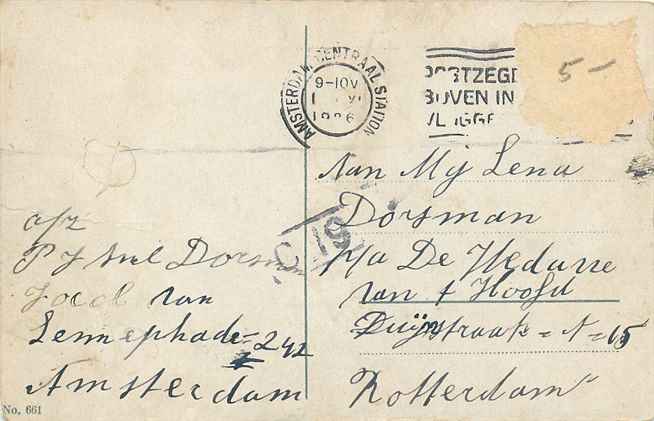 AMSTERDAM CENTRAAL STATION
9-10V
1926
POSTZEG
BOVEN IN
5-
Aan Mej Lena
Dorsman
p/a De Wed
van t Hoofd
Duijnstraat = N = 15
Rotterdam
afz
P J Dorsman
Joed van
Lennephade = 242
Amsterdam
No. 661